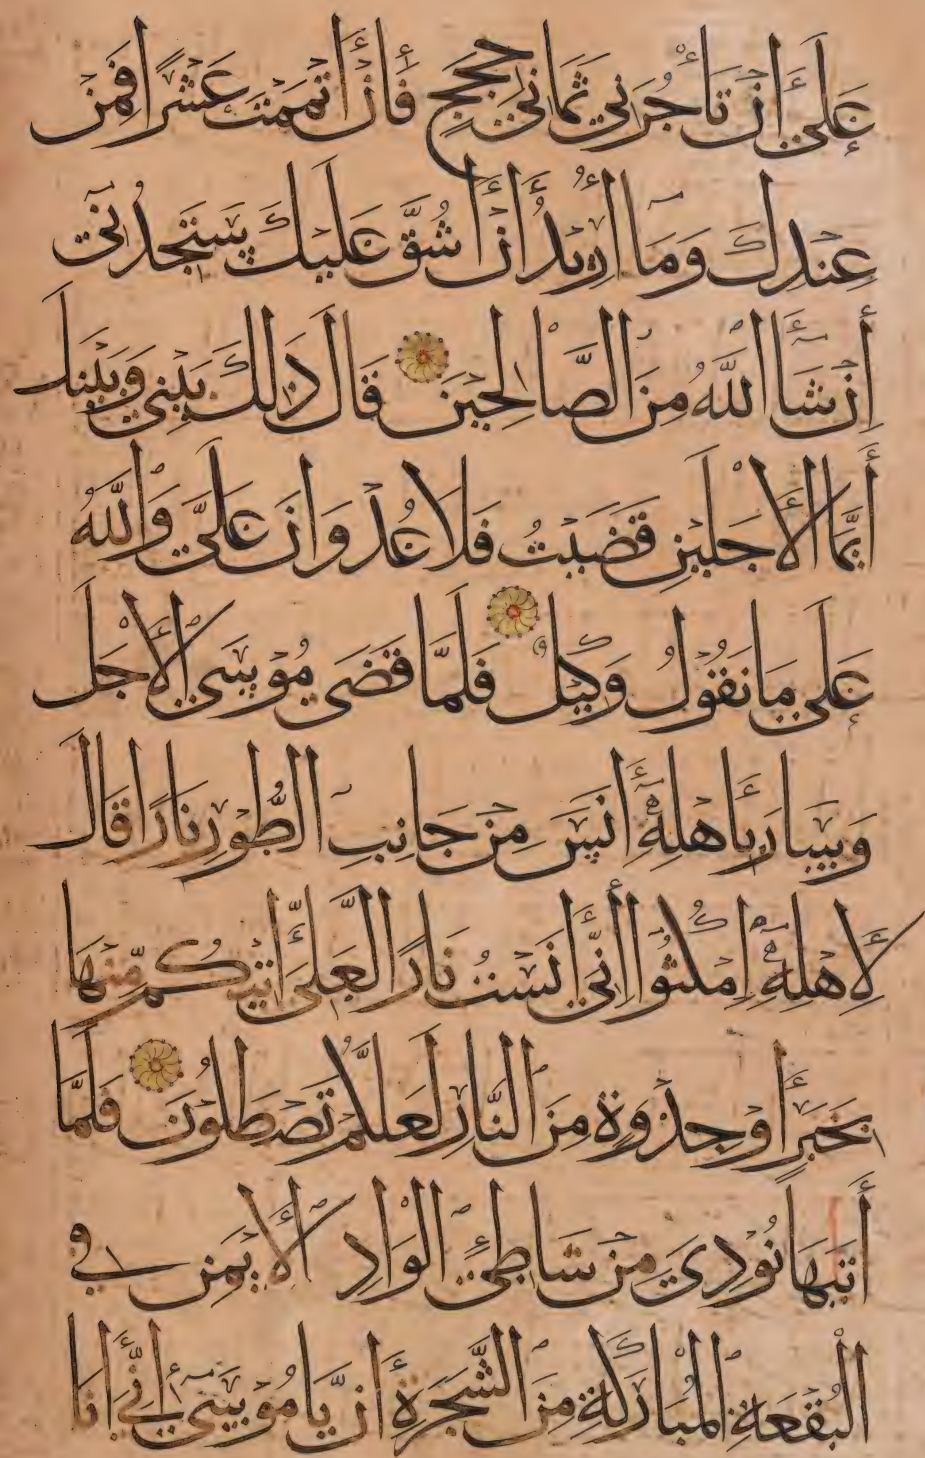 عَلَىٰ أَنْ تَأْجُرَنِي ثَمَانِيَ حِجَجٍ فَإِنْ أَتْمَمْتَ عَشْرًا فَمِنْ
عِنْدِكَ وَمَا أُرِيدُ أَنْ أَشُقَّ عَلَيْكَ سَتَجِدُنِي
إِنْ شَاءَ اللَّهُ مِنَ الصَّالِحِينَ قَالَ ذَلِكَ بَيْنِي وَبَيْنَكَ
أَيَّمَا الْأَجَلَيْنِ قَضَيْتُ فَلَا عُدْوَانَ عَلَيَّ وَاللَّهُ
عَلَىٰ مَا نَقُولُ وَكِيلٌ فَلَمَّا قَضَى مُوسَى الْأَجَلَ
وَسَارَ بِأَهْلِهِ آنَسَ مِنْ جَانِبِ الطُّورِ نَارًا قَالَ
لِأَهْلِهِ امْكُثُوا إِنِّي آنَسْتُ نَارًا لَعَلِّي آتِيكُمْ مِنْهَا
بِخَبَرٍ أَوْ جِذْوَةٍ مِنَ النَّارِ لَعَلَّكُمْ تَصْطَلُونَ فَلَمَّا
أَتَيهَا نُودِيَ مِنْ شَاطِئِ الْوَادِ الْأَيْمَنِ فِي
الْبُقْعَةِ الْمُبَارَكَةِ مِنَ الشَّجَرَةِ أَنْ يَا مُوسَى إِنِّي أَنَا